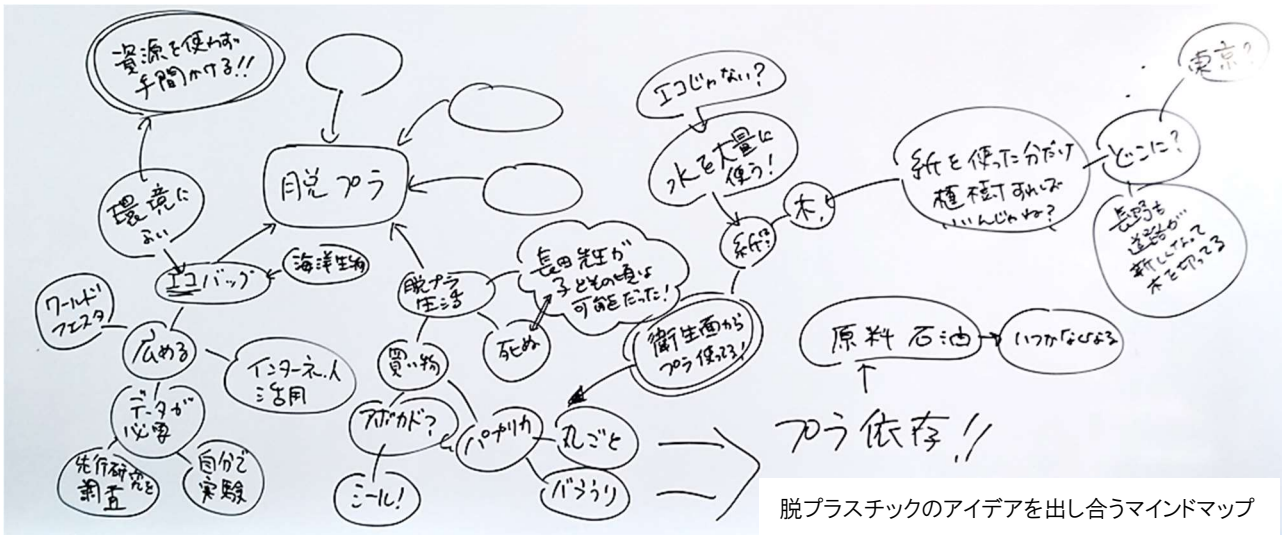 資源を使わず
手間かける!!
脱プラ
環境に
よい
エコバッグ
海洋生物
ワールド
フェスタ
広める
インターネット
活用
データが
必要
先行研究を
調査
自分で
実験
脱プラ
生活
長田先生が
子どもの頃は
可能だった!
死ぬ
買い物
アボカド?
シール!
パプリカ
丸ごと
バラうり
衛生面から
プラ使ってる!
エコじゃない?
水を大量に
使う!
紙?
木!
紙を使った分だけ
植樹すれば
いいんじゃね?
どこに?
東京?
長野も
道路が…
新しくなって
木を切ってる
原料 石油
いつかなくなる
プラ依存!!
脱プラスチックのアイデアを出し合うマインドマップ